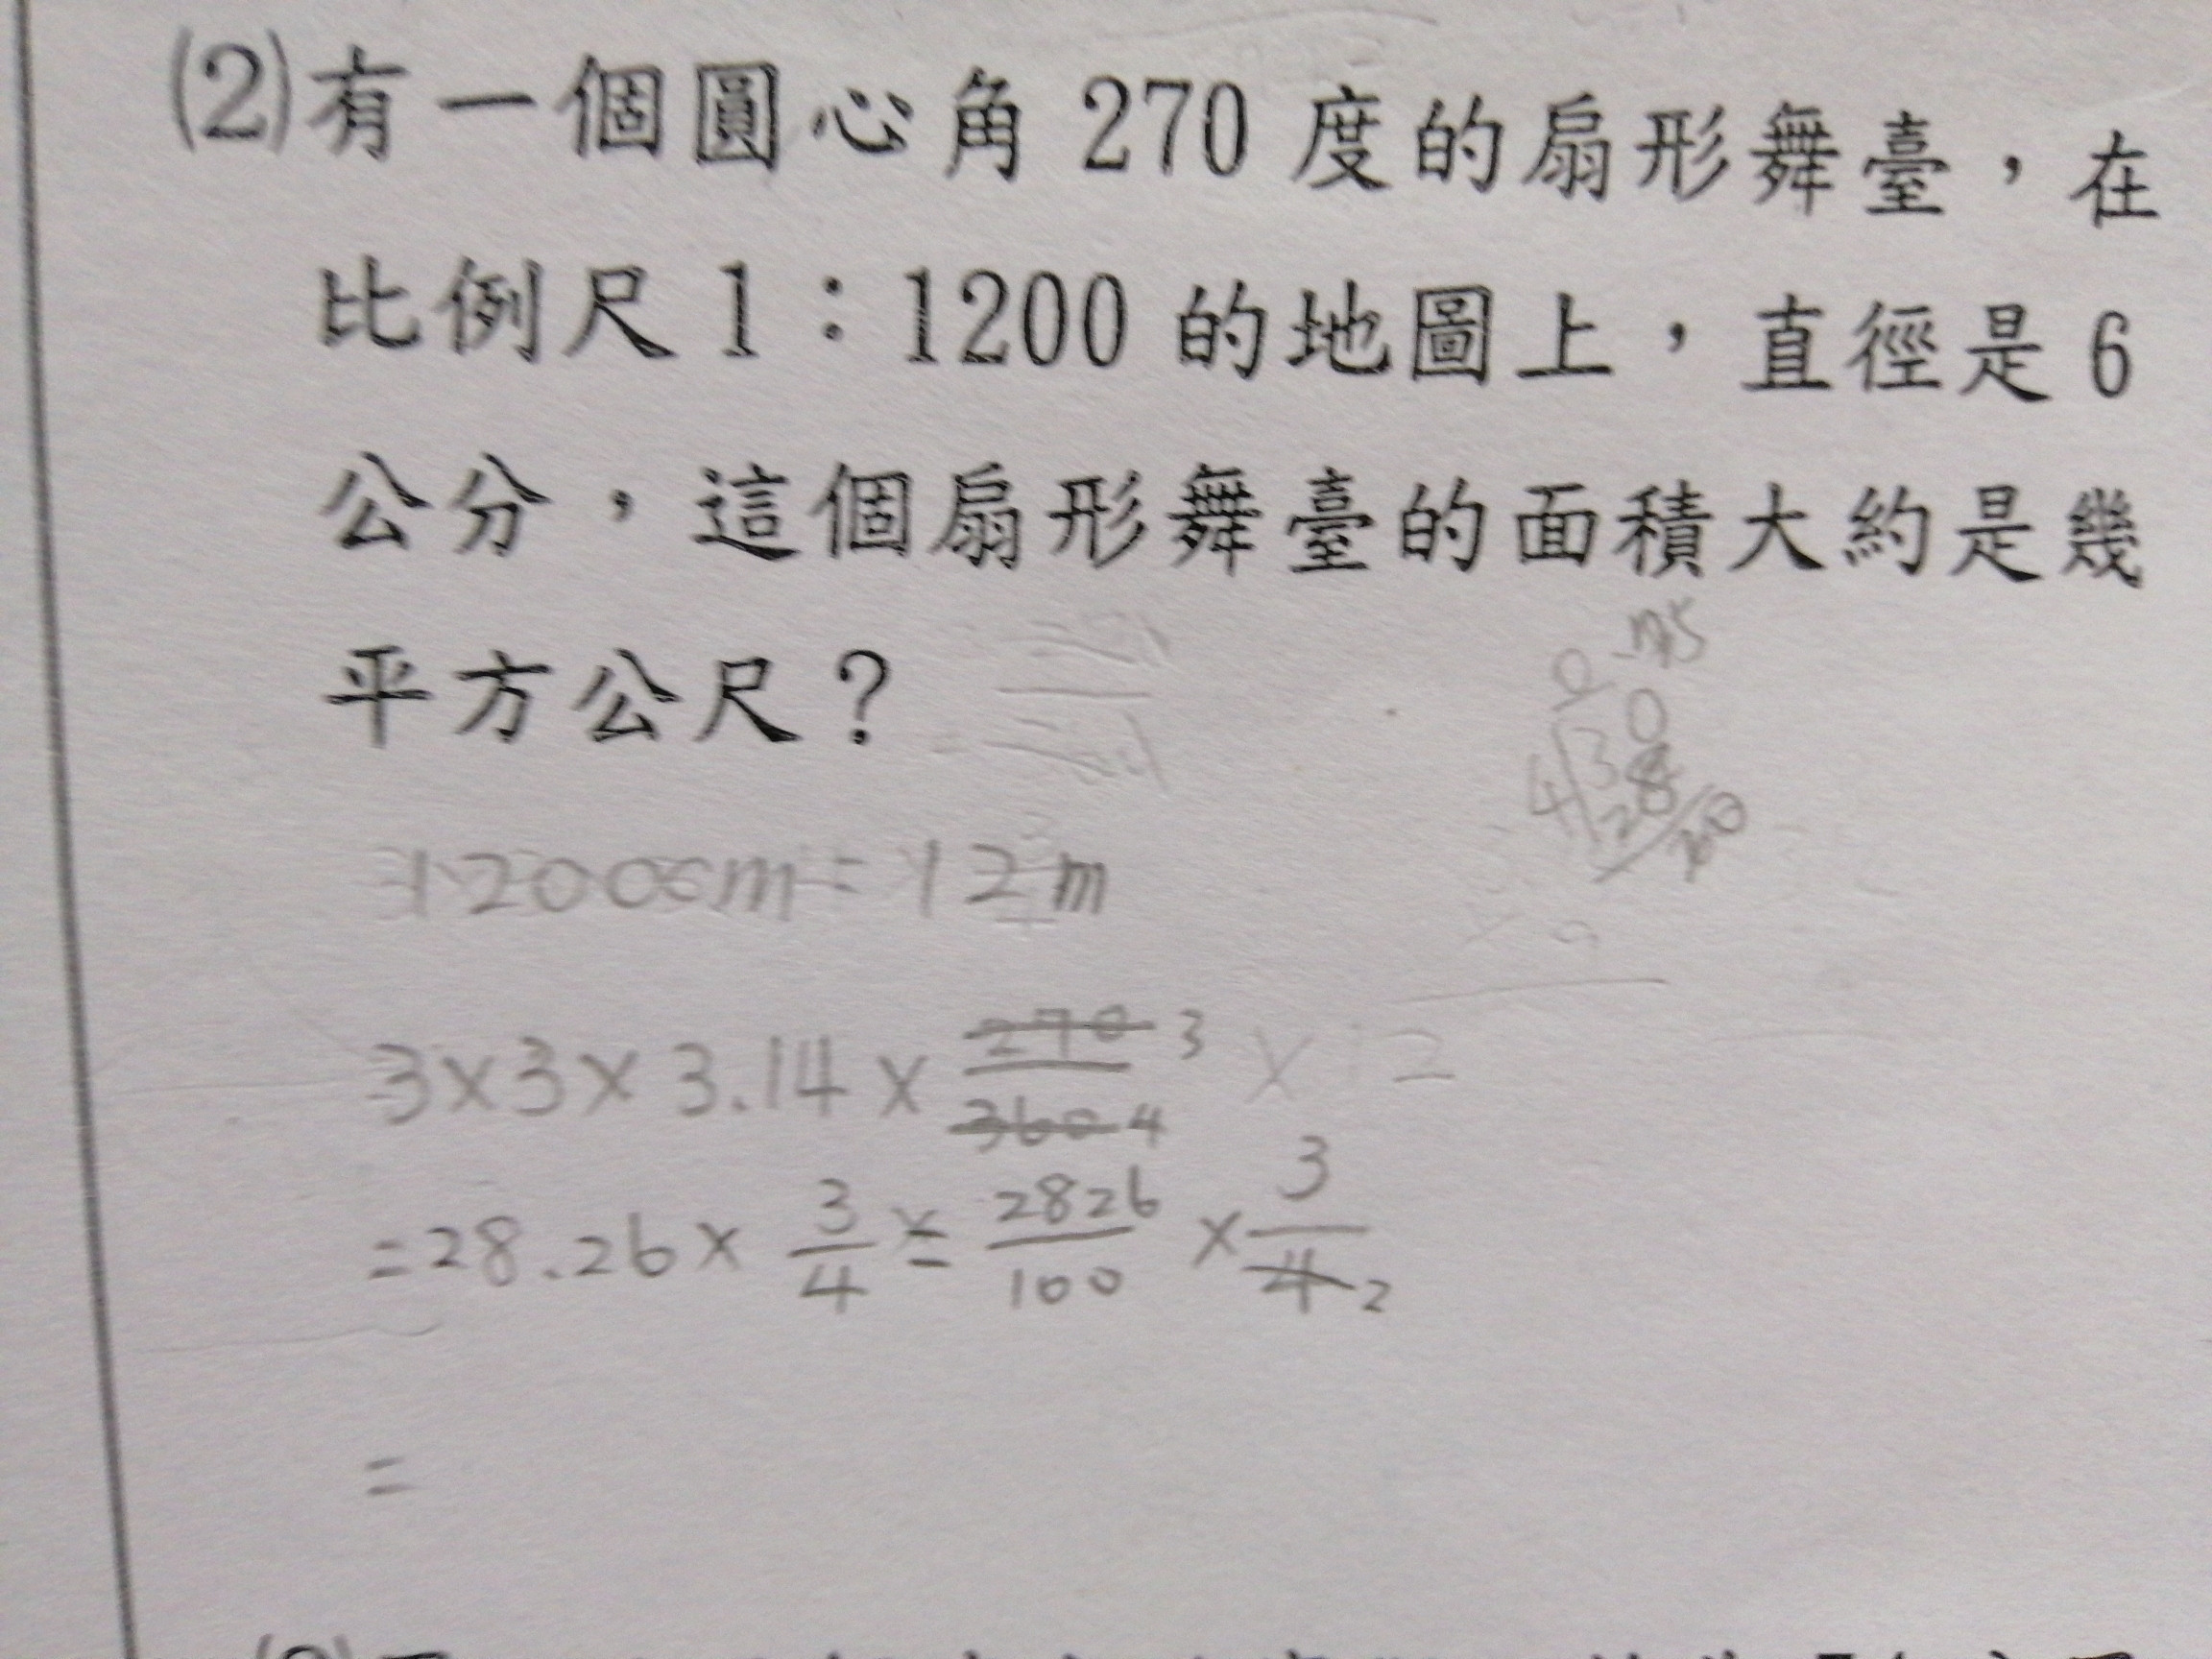 (2)有一個圓心角 270 度的扇形舞臺，在
比例尺 1：1200 的地圖上，直徑是 6
公分，這個扇形舞臺的面積大約是幾
平方公尺？
1200cm = 12m
3×3×3.14× 270/360 3/4 ×12
=28.26× 3/4 = 2826/100 × 3/4 2
=